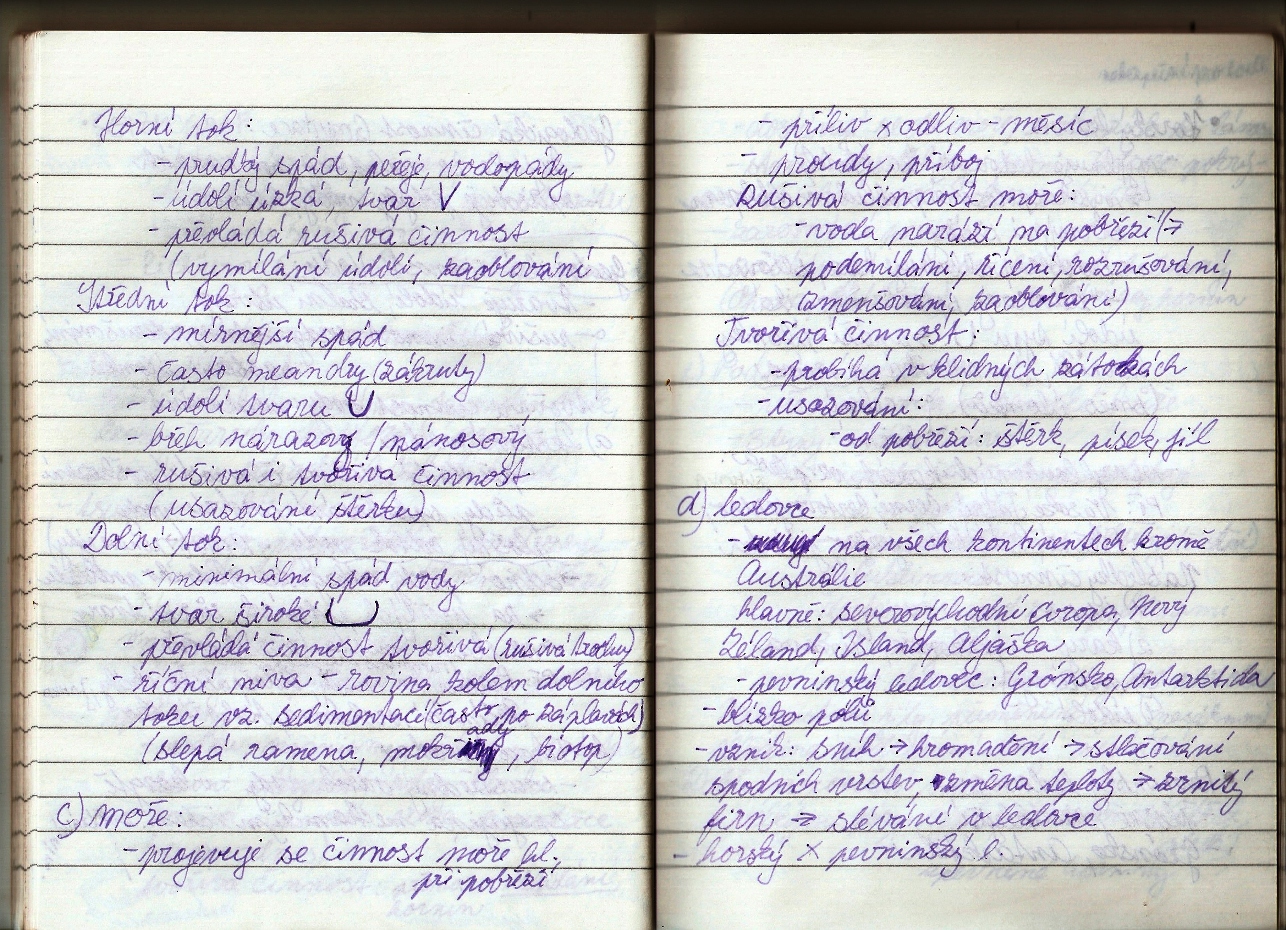 Horní tok:
- prudký spád, peřeje, vodopády
- údolí úzká, tvar V
- převládá rušivá činnost
(vymílání údolí, zaoblování
Střední tok:
- mírnější spád
- často meandry (zákruty)
- údolí tvaru U
- břeh nárazový / nánosový
- rušivá i tvořivá činnost
(usazování štěrku)
Dolní tok:
- minimální spád vody
- tvar široké U
- převládá činnost tvořivá (rušivá trochu)
- říční niva - rovina kolem dolního
toku vz. sedimentací (část. po záplavách)
(slepá ramena, mokřady, biotop)
c) moře:
- projevuje se činnost moře hl.
při pobřeží
- příliv x odliv - měsíc
- proudy, příboj
Rušivá činnost moře:
- voda naráží na pobřeží (→
podemílání, řícení, rozrušování,
zmenšování, zaoblování)
Tvořivá činnost:
- probíhá v klidných zátokách
- usazování:
- od pobřeží: štěrk, písek, jíl
d) ledovce
- na všech kontinentech kromě
Austrálie
hlavně: severovýchodní Evropa, Nový
Zéland, Island, Aljaška
- pevninský ledovec: Grónsko, Antarktida
- blízko pólů
- vznik: sníh → hromadění → stlačování
spodních vrstev, změna teploty → zrnitý
firn → slévání v ledovce
- horský x pevninský l.